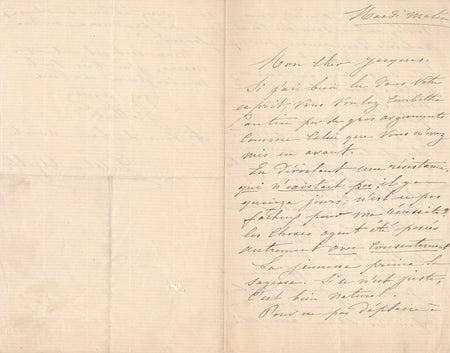 Mardi matin
Mon cher Jacques.
Si j'ai bien lu dans votre
esprit, vous voulez
par de gros arguments
comme celui que vous m'avez
mis en avant.
En dévoilant une résistance,
qui n'existait pas il y a
quinze jours; n'est-ce pas
fâcheux pour ma réussite?
les choses ayant été posées
autrement avec consentement
La jeunesse prime la
sagesse. Si ce n'est juste,
c'est bien naturel.
Pour ne pas déplaire à